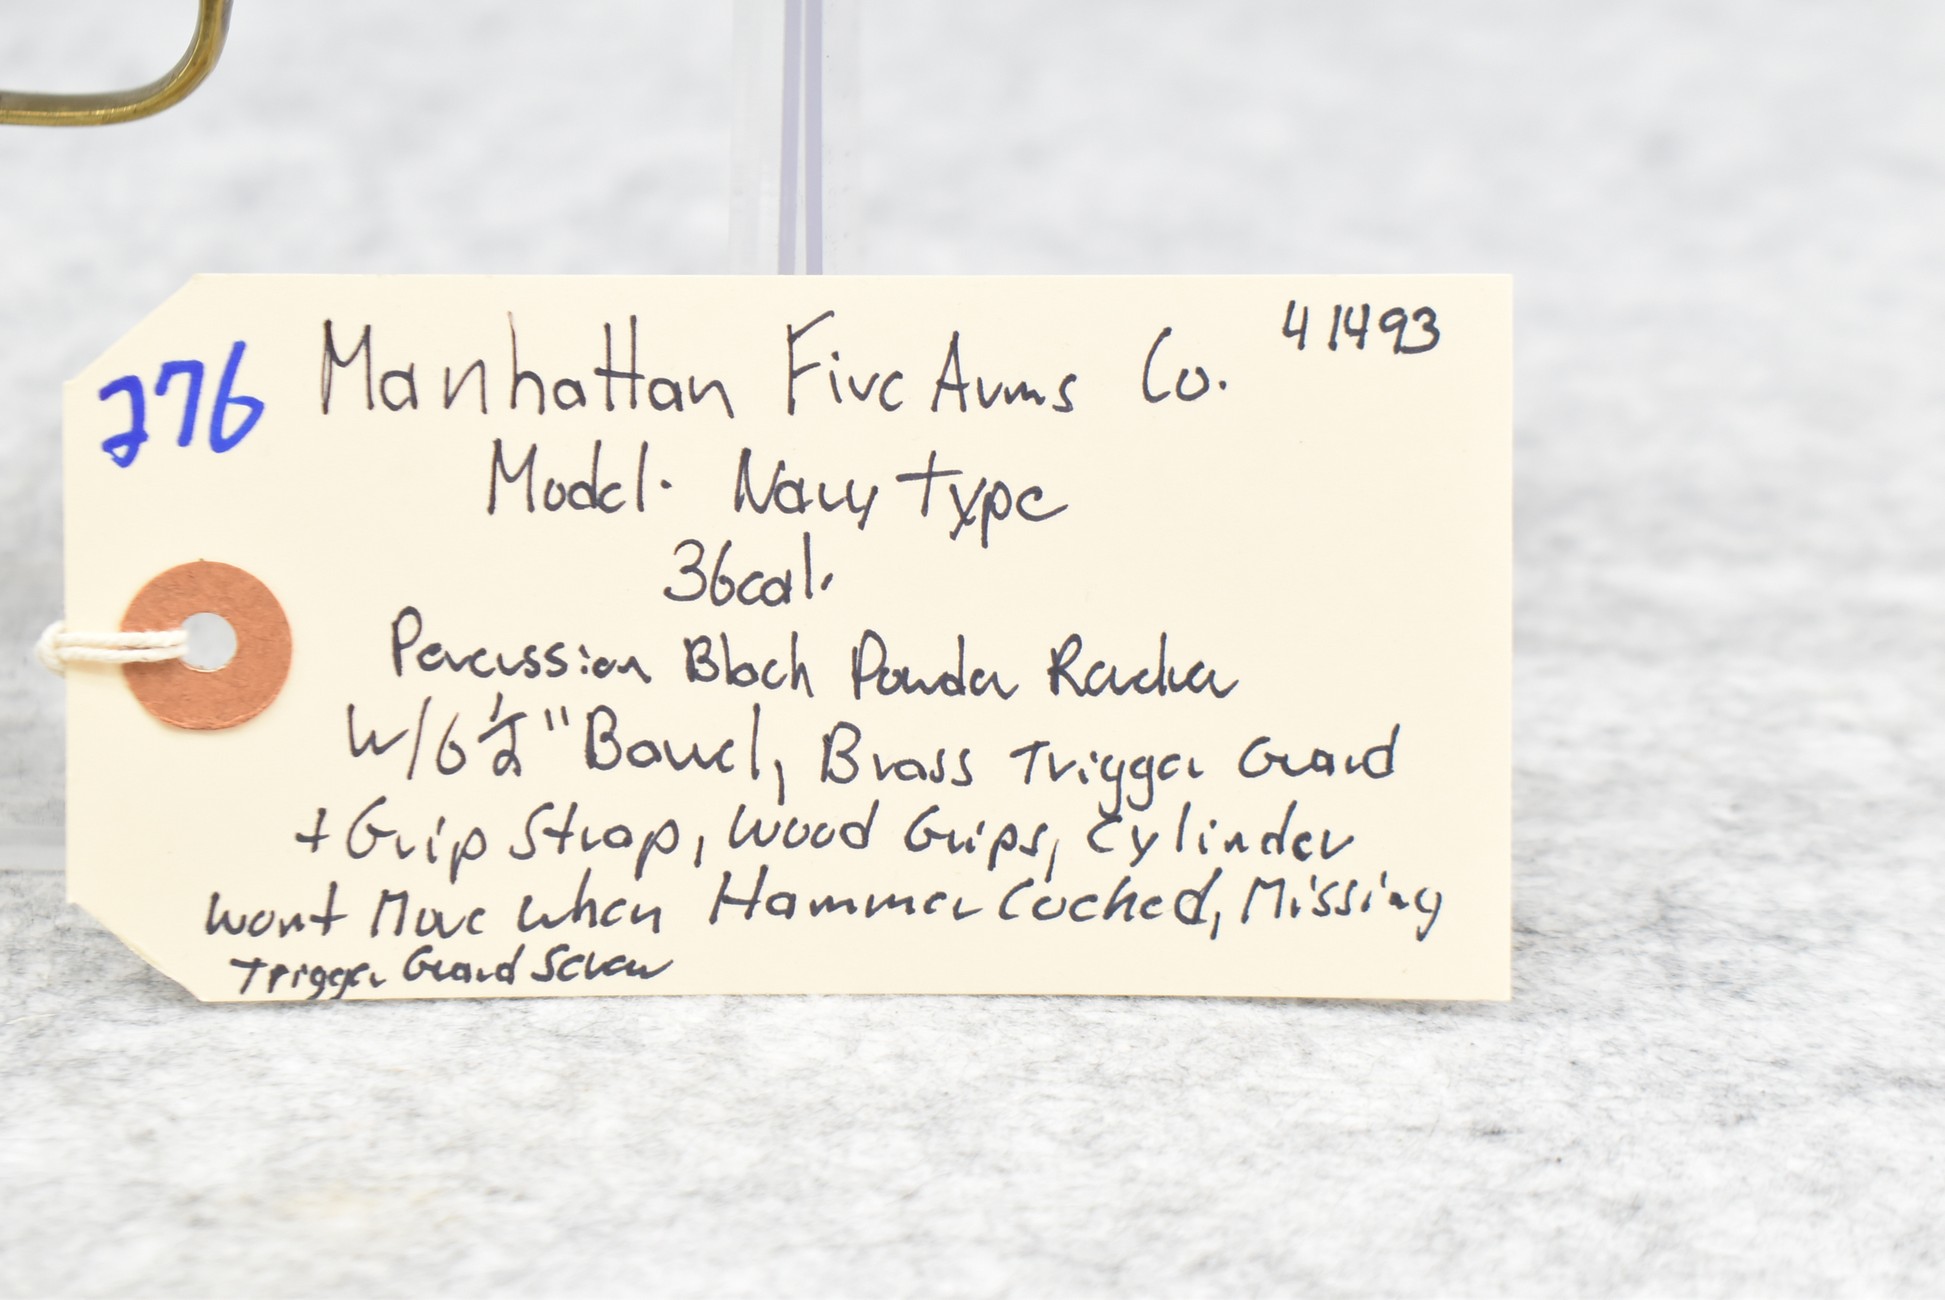 41493
276
Manhattan Fire Arms Co.
Model. Navy Type
36cal.
Percussion Black Powder
W/6 1/2" Barrel, Brass Trigger Guard
+ Grip Strap, Wood Grips, Cylinder
Wont Move When Hammer Cocked, Missing
Trigger Guard Screw